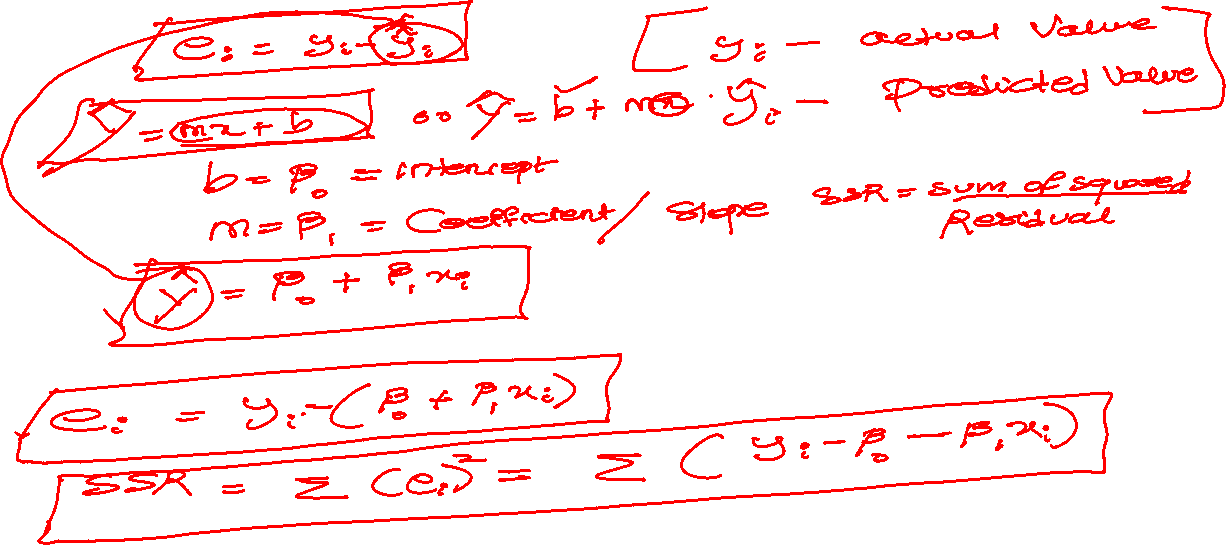 eᵢ = yᵢ - ŷᵢ [ yᵢ — actual value
ŷ = mx + b ∞ ŷ = b + mx · ŷᵢ — Predicted value ]
b = β₀ = intercept
m = β₁ = Coefficient / slope SSR = sum of squared
Residual
ŷ = β₀ + β₁xᵢ
eᵢ = yᵢ - (β₀ + β₁xᵢ)
SSR = Σ (eᵢ)² = Σ (yᵢ - β₀ - β₁xᵢ)